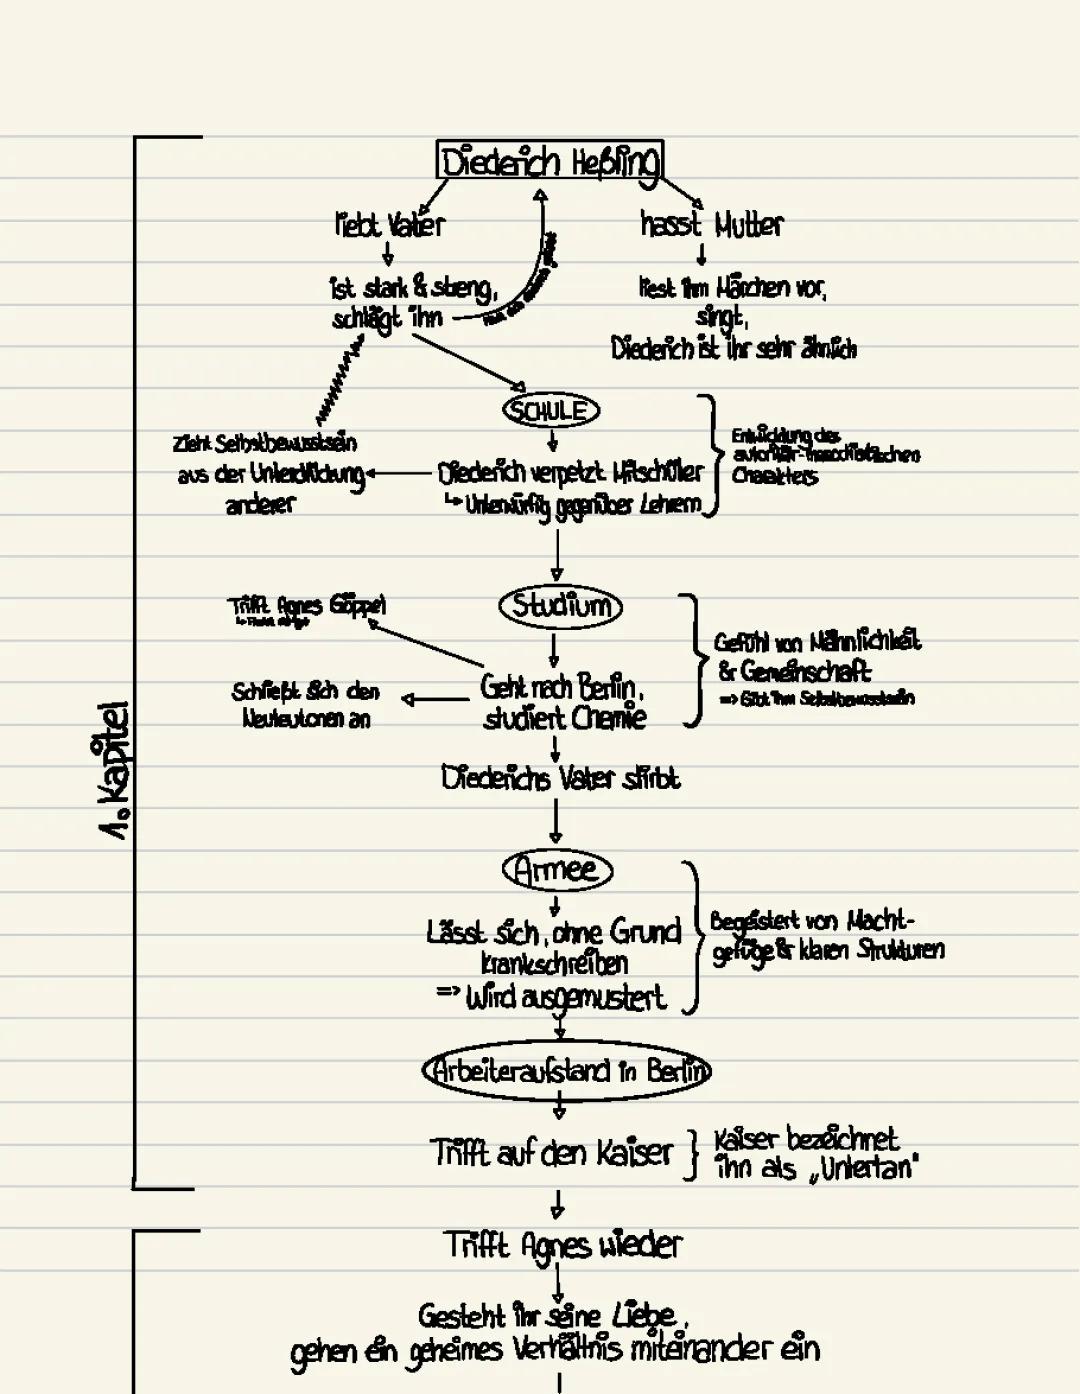 Diederich Heßling
liebt Vater
hasst Mutter
ist stark & streng,
schlägt ihn
liest ihm Märchen vor,
singt,
Diederich ist ihr sehr ähnlich
SCHULE
Zieht Selbstbewusstsein
aus der Unterdrückung
anderer
Diederich verpetzt Mitschüler
↳ Unterwürfig gegenüber Lehrern
Entwicklung des
autoritär-masochistischen
Charakters
Studium
Trifft Agnes Göppel
Geht nach Berlin,
studiert Chemie
Schließt sich den
Neuteutonen an
Gefühl von Männlichkeit
& Gemeinschaft
=> Gibt ihm Selbstbewusstsein
Diederichs Vater stirbt
1. Kapitel
Armee
Lässt sich, ohne Grund
krankschreiben
=> Wird ausgemustert
Begeistert von Macht-
gefüge & klaren Strukturen
Arbeiteraufstand in Berlin
Trifft auf den Kaiser
Kaiser bezeichnet
ihn als „Untertan"
Trifft Agnes wieder
Gesteht ihr seine Liebe,
gehen ein geheimes Verhältnis miteinander ein